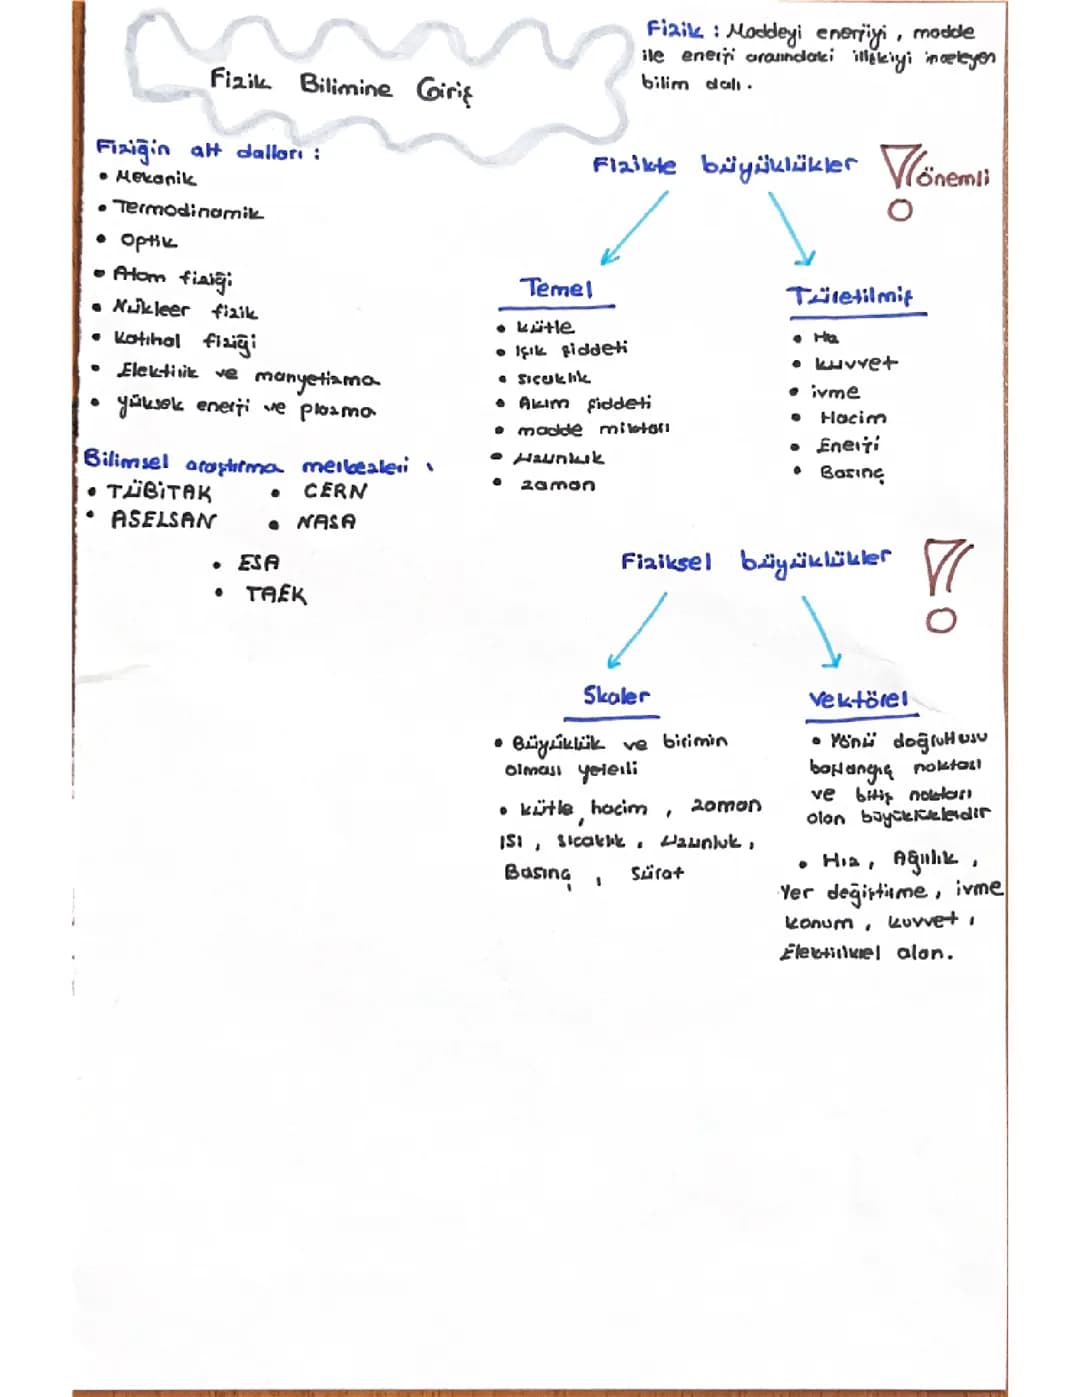 Fizik Bilimine Giriş
Fizik : Maddeyi enerjiyi , madde
ile enerji arasındaki ilişkiyi inceleyen
bilim dalı .
Fiziğin alt dalları :
• Mekanik
• Termodinamik
• Optik
• Atom fiziği
• Nükleer fizik
• Katıhal fiziği
• Elektirik ve manyetizma
• yüksek enerji ve plazma
Bilimsel araştırma merkezleri :
• TÜBİTAK • CERN
• ASELSAN • NASA
• ESA
• TAEK
Fizikte büyüklükler
önemli
Temel
• kütle
• Işık şiddeti
• sıcaklık
• Akım şiddeti
• madde miktarı
• Uzunluk
• zaman
Türetilmiş
• Hız
• kuvvet
• ivme
• Hacim
• Enerji
• Basınç
Fiziksel büyüklükler
Skaler
• Büyüklük ve birimin
olması yeterli
• kütle, hacim , zaman
ISI , sıcaklık , Uzunluk ,
Basınç , Sürat
Vektörel
• Yönü doğrultusu
başlangıç noktası
ve bitiş noktası
olan büyüklüklerdir
• Hız , Ağırlık ,
Yer değiştirme , ivme
konum , kuvvet ,
Elektriksel alan .